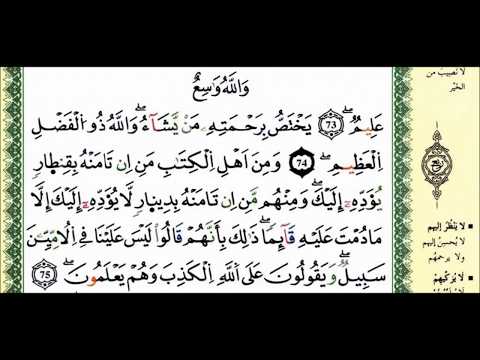 وَاللَّهُ وَٰسِعٌ
عَلِيمٌۖ 73 يَخْتَصُّ بِرَحْمَتِهِۦ مَنْ يَّشَآءُۖ وَاللَّهُ ذُو الْفَضْلِ
اِلْعَظِيمِۖ 74 وَمِنَ اَهْلِ الْكِتَٰبِ مَنِ اِن تَامَنْهُ بِقِنطِارٖ
يُؤَدِّهِۦٓ إِلَيْكَۖ وَمِنْهُم مَّنِ اِن تَامَنْهُ بِدِينِارٖ لَّا يُؤَدِّهِۦٓ إِلَيْكَ إِلَّا
مَادُمْتَ عَلَيْهِ قَآئِماٗۖ ذَٰلِكَ بِأَنَّهُمْ قَالُواْ لَيْسَ عَلَيْنَا فِى اِلُامِّيِّـۧنَ
سَبِيلٌۖ وَيَقُولُونَ عَلَى اَللَّهِ اِلْكَذِبَ وَهُمْ يَعْلَمُونَۖ 75
لا نَصيبَ من
الخَيْر
لا يَنظُرُ إليهم
لا يُحسِنُ إليهم
ولا يرحمهم
لا يُزَكِّيهِمْ